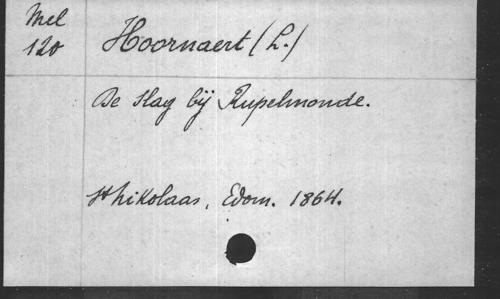 Mel
120
Hoornaert (L.)
De Slag bij Rupelmonde.
St Nikolaas, Edom. 1864.